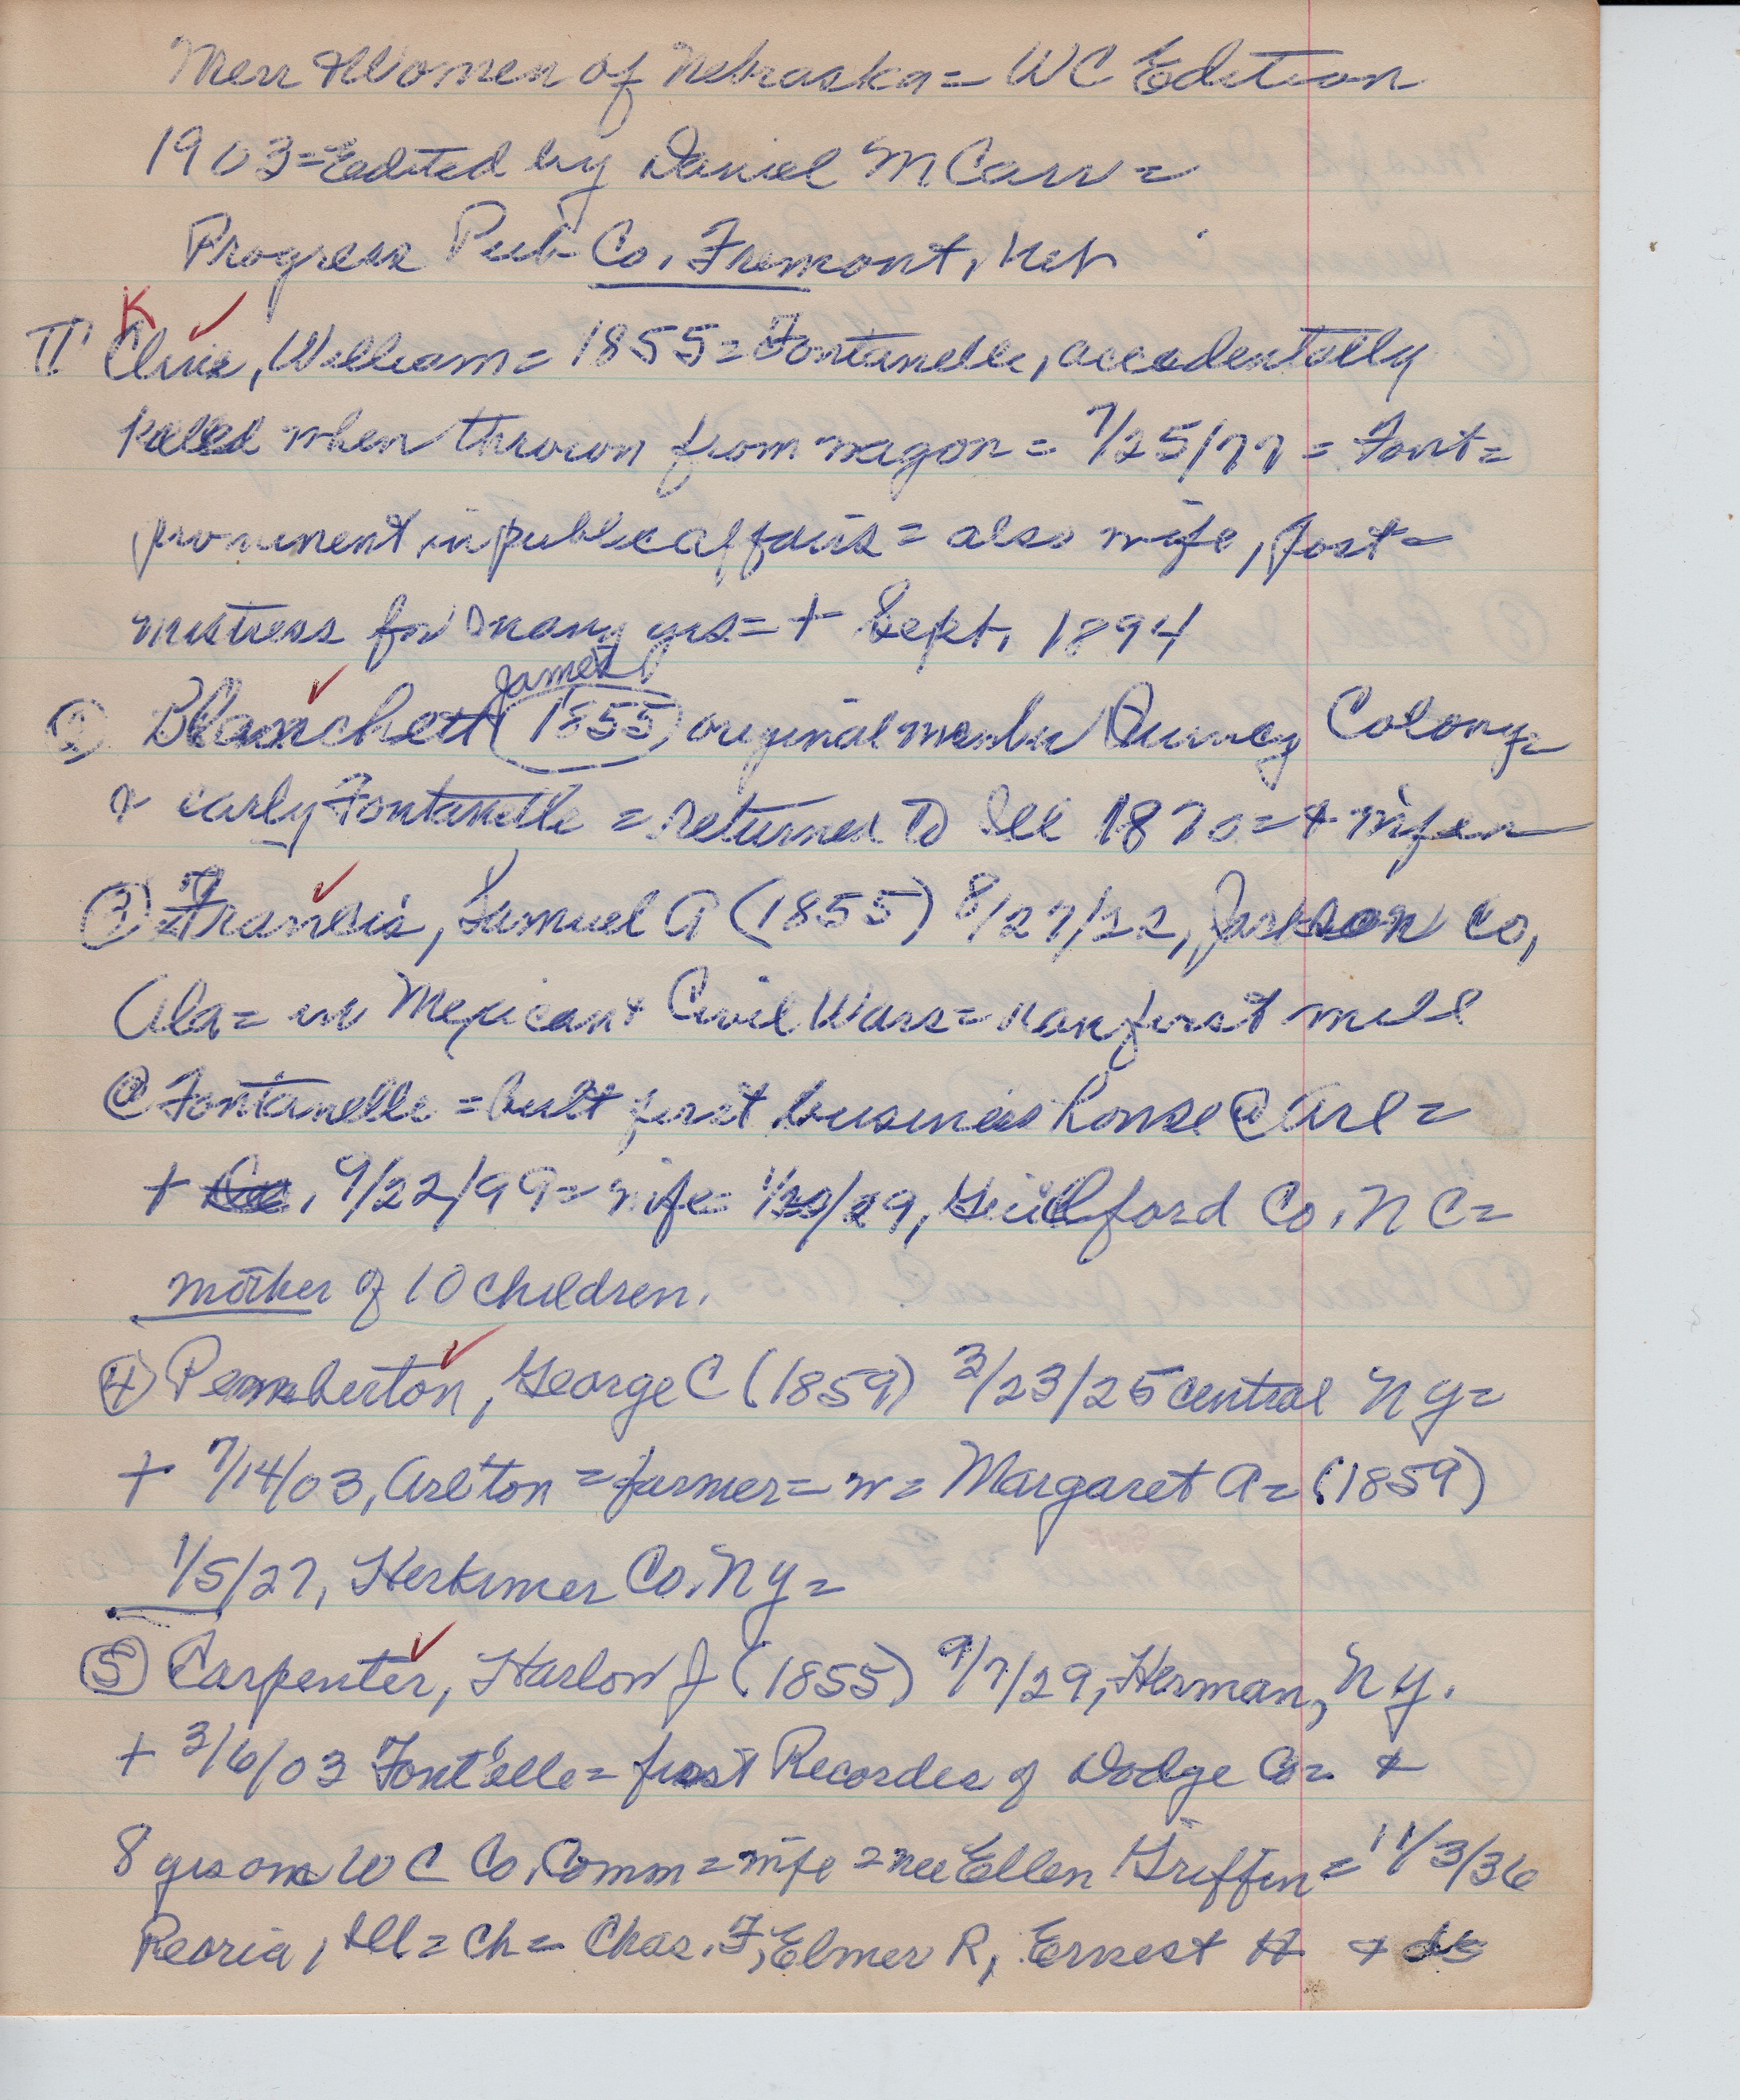 Men & Women of Nebraska = WC Edition
1903 = Eedited by Daniel M Carr =
Progress Pub Co, Fremont, Neb
K
Cline, William = 1855 = Fontanelle, accedentally
killed when thrown from wagon = 7/25/77 = Font =
prominent in public affairs = also wife, post =
mistress for many yrs = + Sept, 1894
James
② Blanchett (1855), original member Quincy Colony =
& early Fontanelle = returned to Ill 1870 = + wife
③ Francis, Samuel A (1855) 8/27/22, Jackson Co,
Ala = in Mexican & Civil Wars = ran first mill
@ Fontanelle = built first business house @ Arl =
+ 9/22/99 = wife = /29, Guilford Co, NC =
mother of 10 children.
④ Pemberton, George C (1859) 3/23/25 central NY =
+ 7/14/03, Arl'ton = farmer = w = Margaret A = (1859)
1/5/27, Herkimer Co. NY =
⑤ Carpenter, Harlow J (1855) 9/7/29, Herman, NY.
+ 3/6/03 Font'elle = first Recorder of Dodge Co = &
8 yrs on W C Co. Comm = wife = nee Ellen Griffin = 11/3/36
Peoria, Ill = ch = Chas. F, Elmer R, Ernest H &